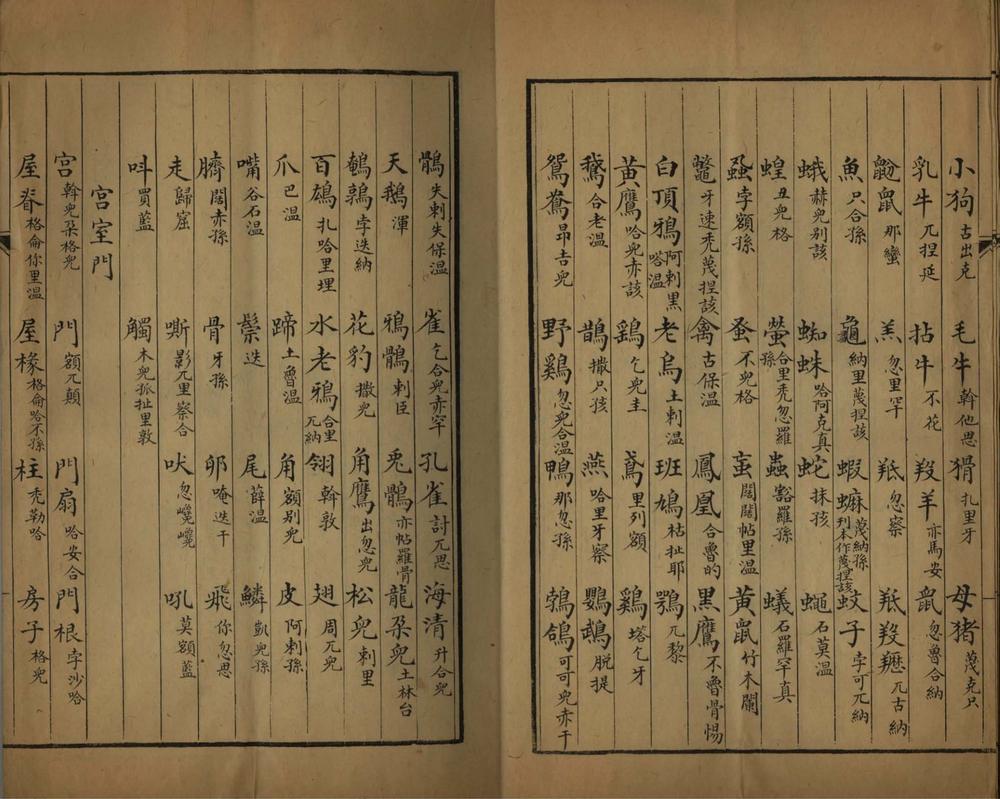 小狗 古出克 毛牛 斡他思 猾 扎里牙 母猪 蔑克只
乳牛 兀捏延 拈牛 不花 羖羊 亦馬安 鼠 忽魯合納
鼢鼠 那蠻 羔 忽里罕 羝 忽察 羝羖䍦 兀古納
魚 只合孫 龜 納里蔑捏該 蝦蟆 蔑納孫列本作蔑捏該 蚊子 孛可兀納
蛾 赫兒別該 蜘蛛 哈阿克真 蛇 抹孩 蠅 石莫温
蝗 丑兒格 螢 合里禿忽羅孫 蟲 豁羅孫 蟻 石羅罕真
蝨 孛額孫 蚤 不兒格 䖟 闊闊帖里温 黄鼠 竹木闌
鼈 牙速禿蔑捏該 禽 古保温 鳳凰 合魯的 黑鷹 不魯骨惕
白頂鴉 阿剌黑嗒温 老烏 土剌温 班鳩 枯扯耶 鶚 兀黎
黄鷹 哈兒赤該 鷄 乞兒圭 鳶 里列額 鷄 塔乞牙
鵝 合老温 鵲 撒只孩 燕 哈里牙察 鸚鵡 脱提
鴛鴦 昂吉兒 野鷄 忽兒合温 鴨 那忽孫 鵓鴿 可可兒赤干
鶻 失剌失保温 雀 乞合兒赤罕 孔雀 計兀思 海清 升合兒
天鵝 渾 鴉鶻 剌臣 兎鶻 亦帖羅骨 龍 朶兒土林台
鵪鶉 孛迭納 花豹 撒兒 角鷹 出忽兒 松兒 剌里
百鴣 扎哈里埋 水老鴉 合里兀納 翎 斡敦 翅 周兀兒
爪 巴温 蹄 土魯温 角 額别兒 皮 阿剌孫
嘴 谷石温 鬃 迭 尾 薛温 鱗 凱兒孫
臍 闊赤孫 骨 牙孫 卵 唵迭干 飛 你忽思
走 歸窟 嘶 影兀里察合 吠 忽巉巉 吼 莫額藍
呌 買藍 觸 木兒孤扯里敦
宫室門
宫 斡兒朶格兒 門 額兀顛 門扇 哈安合 門根 孛沙哈
屋脊 格侖你里温 屋椽 格侖哈不孫 柱 禿勒哈 房子 格兒